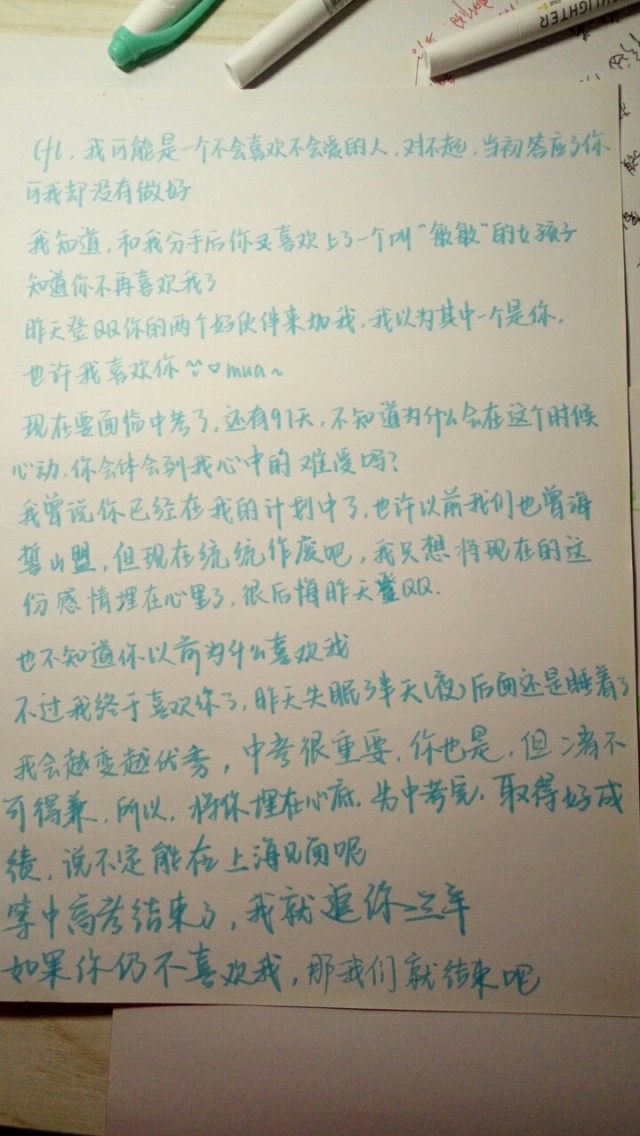 HLIGHTER
cfl，我可能是一个不会喜欢不会爱的人，对不起，当初答应了你
可我却没有做好
我知道，和我分手后你又喜欢上了一个叫“敏敏”的女孩子
知道你不再喜欢我了
昨天登QQ你的两个好伙伴来加我，我以为其中一个是你，
也许我喜欢你 mua~
现在要面临中考了，还有97天，不知道为什么会在这个时候
心动，你会体会到我心中的难受吗？
我曾说你已经在我的计划中了，也许以前我们也曾海
誓山盟，但现在统统作废吧，我只想将现在的这
份感情埋在心里了，很后悔昨天登QQ.
也不知道你以前为什么喜欢我
不过我终于喜欢你了，昨天失眠了半天(夜)后面还是睡着了
我会越变越优秀，中考很重要，你也是，但二者不
可得兼，所以，将你埋在心底，为中考完，取得好成
绩，说不定能在上海见面呢
等中高考结束了，我就追你三年
如果你仍不喜欢我，那我们就结束吧